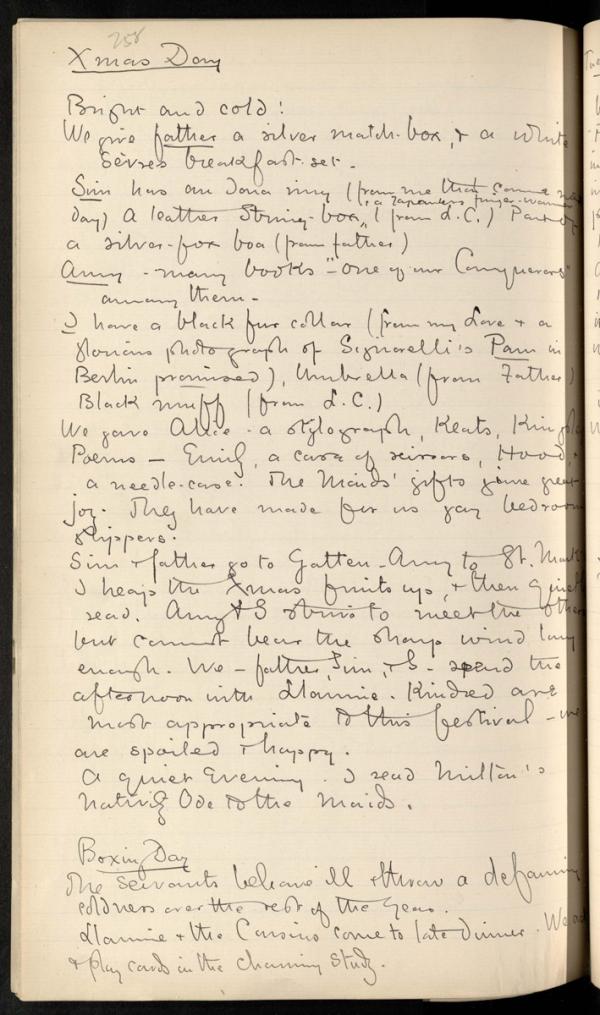 258
Xmas Day
Bright and cold!
We give father a silver match-box, & a white
Sèvres breakfast-set.
Sim has an ring (from me that came
, a Japanese finger-warmer
day) A leather String-box, (from L.C.)
a silver-fox boa (from father)
Amy - many books - "One of our Conquerors"
among them -
I have a black fur collar (from my Love & a
glorious photograph of Signorelli's Pan in
Berlin promised), Umbrella (from Father)
Black muff (from L.C.)
We gave Alice - a stylograph, Keats,
Poems - Emily, a case of scissors, Hood,
a needle-case. The Maids' gifts give great
joy. They have made for us gay bedroom
slippers.
Sim & father go to Gatten - Amy to St. Mark
I heap the Xmas fruits up, & then quiet
read. Amy & I strive to meet the others
but cannot bear the sharp wind long
enough. We - father, Sim, & I - spend the
afternoon with Llannie. Kindred are
most appropriate to this festival - we
are spoiled & happy.
A quiet Evening. I read Milton's
Nativity Ode to the Maids.
Boxing Day
The Servants behave ill & throw a
coldness over the rest of the Year.
Llannie & the Cousins come to late Dinner. We
& play cards in the charming Study.